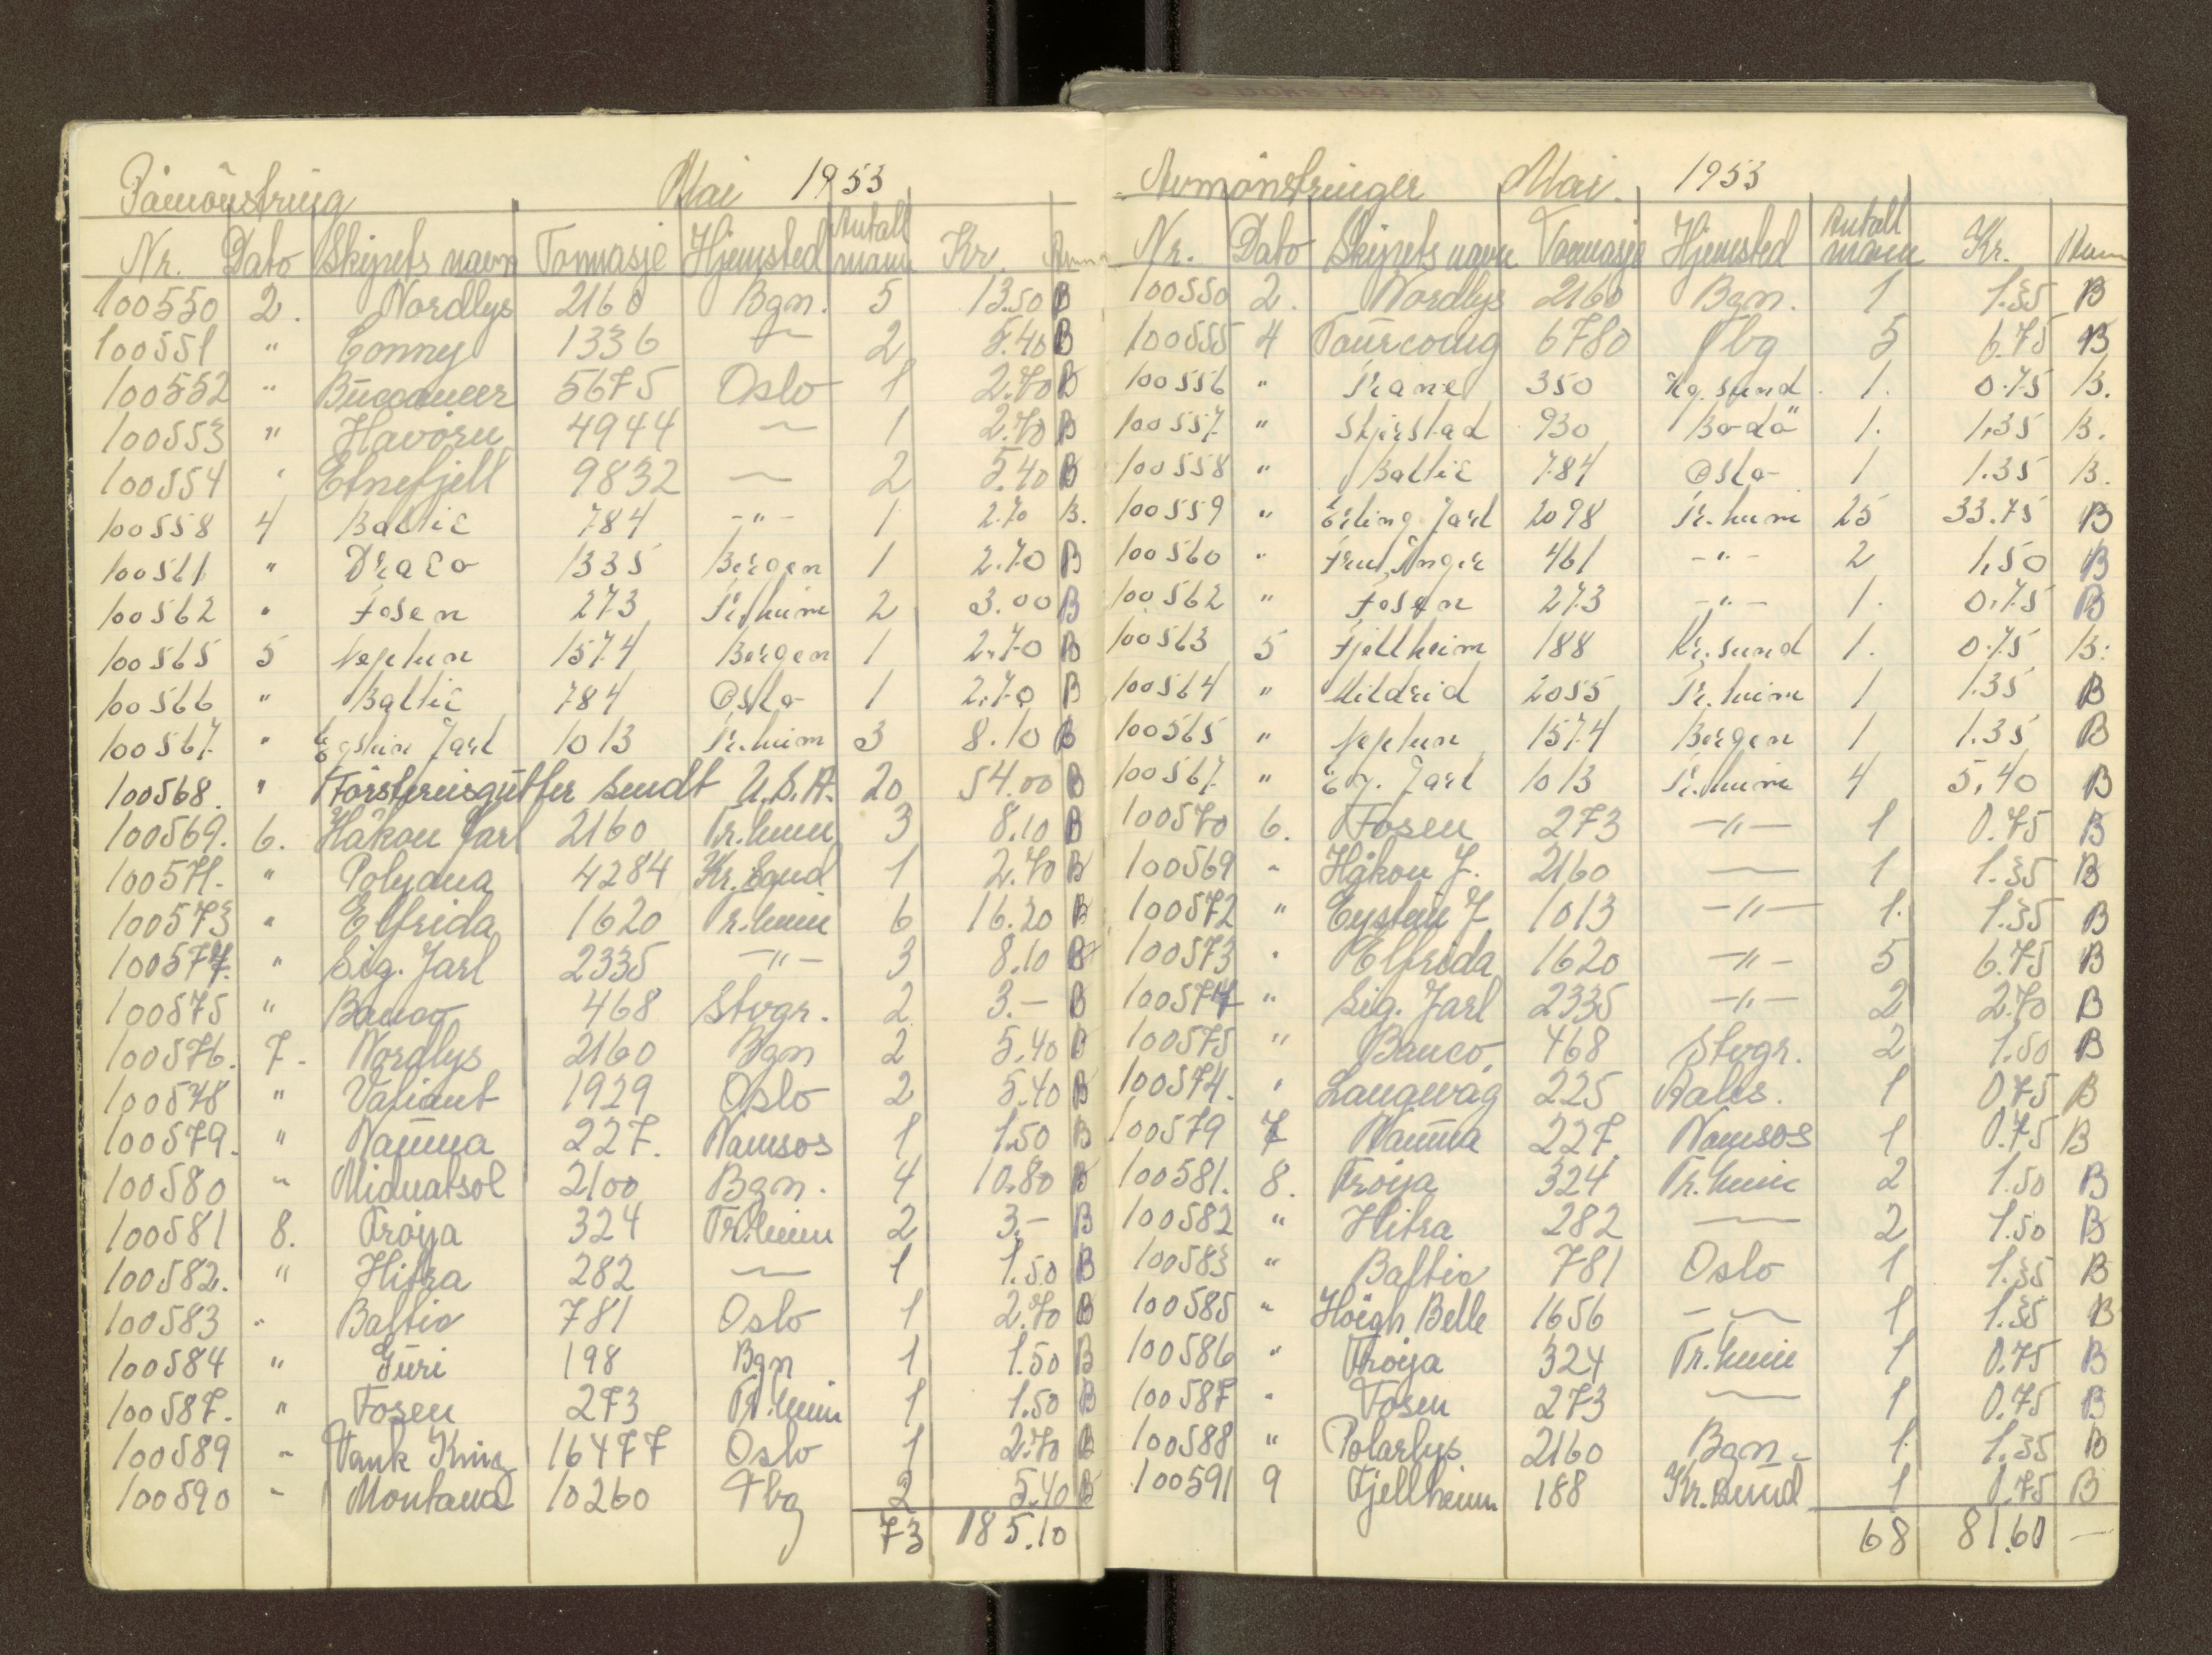 Påmönstring Mai 1953
Nr. Dato Skipets navn Tonnasje Hjemsted Antall mann Kr.
100550 2. Nordlys 2160 Bgn. 5 13.50 B
100551 " Conny 1336 — 2 5.40 B
100552 " Buccaneer 5675 Oslo 1 2.70 B
100553 " Havörn 4944 — 1 2.70 B
100554 " Etnefjell 9832 — 2 5.40 B
100558 4 Baltic 784 -"- 1 2.70 B.
100561 " Draco 1335 Bergen 1 2.70 B
100562 " Fosen 273 Tr.heim 2 3.00 B
100565 5 Neptun 1574 Bergen 1 2.70 B
100566 " Baltic 784 Oslo 1 2.70 B
100567. " Eystein Jarl 1013 Tr.heim 3 8.10 B
100568. " Förstereisgutter sendt U.S.A. 20 54.00 B
100569. 6. Håkon Jarl 2160 Tr.heim 3 8.10 B
100571. " Polyana 4284 Kr.sand 1 2.70 B
100573 " Elfrida 1620 Tr.heim 6 16.20 B
100577. " Sig. Jarl 2335 -"- 3 8.10 B
100575 " Banco 468 Stvgr. 2 3.- B
100576. 7. Nordlys 2160 Bgn 2 5.40 B
100578 " Valiant 1929 Oslo 2 5.40 B
100579. " Namna 227. Namsos 1 1.50 B
100580 " Midnatsol 2100 Bgn. 4 10.80 B
100581 8. Fröya 324 Tr.heim 2 3.- B
100582. " Hitra 282 — 1 1.50 B
100583 " Baltic 781 Oslo 1 2.70 B
100584 " Guri 198 Bgn 1 1.50 B
100587. " Fosen 273 Tr.heim 1 1.50 B
100589 " Tank King 16477 Oslo 1 2.70 B
100590 " Montana 10260 Tbg 2 5.40 B
73 185.10
Avmönstringer Mai. 1953
Nr. Dato Skipets navn Tonnasje Hjemsted Antall mann Kr.
100550 2. Nordlys 2160 Bgn. 1 1.35 B
100555 4 Tourcoing 6780 Tbg 5 6.75 B
100556 " Trane 350 Hg.sund. 1. 0.75 B.
100557. " Skjerstad 930 Bodö 1. 1,35 B.
100558 " Baltic 784 Oslo 1 1.35 B.
100559 " Erling Jarl 2098 Tr.heim 25 33.75 B
100560 " Fru Inger 461 -"- 2 1,50 B
100562 " Fosen 273 -"- 1. 0.75 B
100563 5 Fjellheim 188 Kr.sund 1. 0.75 B.
100564 " Mildrid 2055 Tr.heim 1 1.35 B
100565 " Neptun 1574 Bergen 1 1.35 B
100567. " Ey. Jarl 1013 Tr.heim 4 5,40 B
100570 6. Fosen 273 -"- 1 0.75 B
100569 " Håkon J. 2160 — 1 1.35 B
100572 " Eystein J 1013 -"- 1. 1.35 B
100573 " Elfrida 1620 -"- 5 6.75 B
100577 " Sig. Jarl 2335 -"- 2 2.70 B
100575 " Banco, 468 Stvgr. 2 1.50 B
100574. " Langevåg 225 Aales. 1 0.75 B
100579 7 Namna 227. Namsos 1 0.75 B
100581. 8. Fröya 324 Tr.heim 2 1.50 B
100582 " Hitra 282 — 2 1.50 B
100583 " Baltic 781 Oslo 1 1.35 B
100585 " Höegh Belle 1656 — 1 1.35 B
100586 " Fröya 324 Tr.heim 1 0.75 B
100587 " Fosen 273 — 1 0.75 B
100588 " Polarlys 2160 Bgn. 1. 1.35 B
100591 9 Fjellheim 188 Kr.sund 1 0.75 B
68 81.60 —